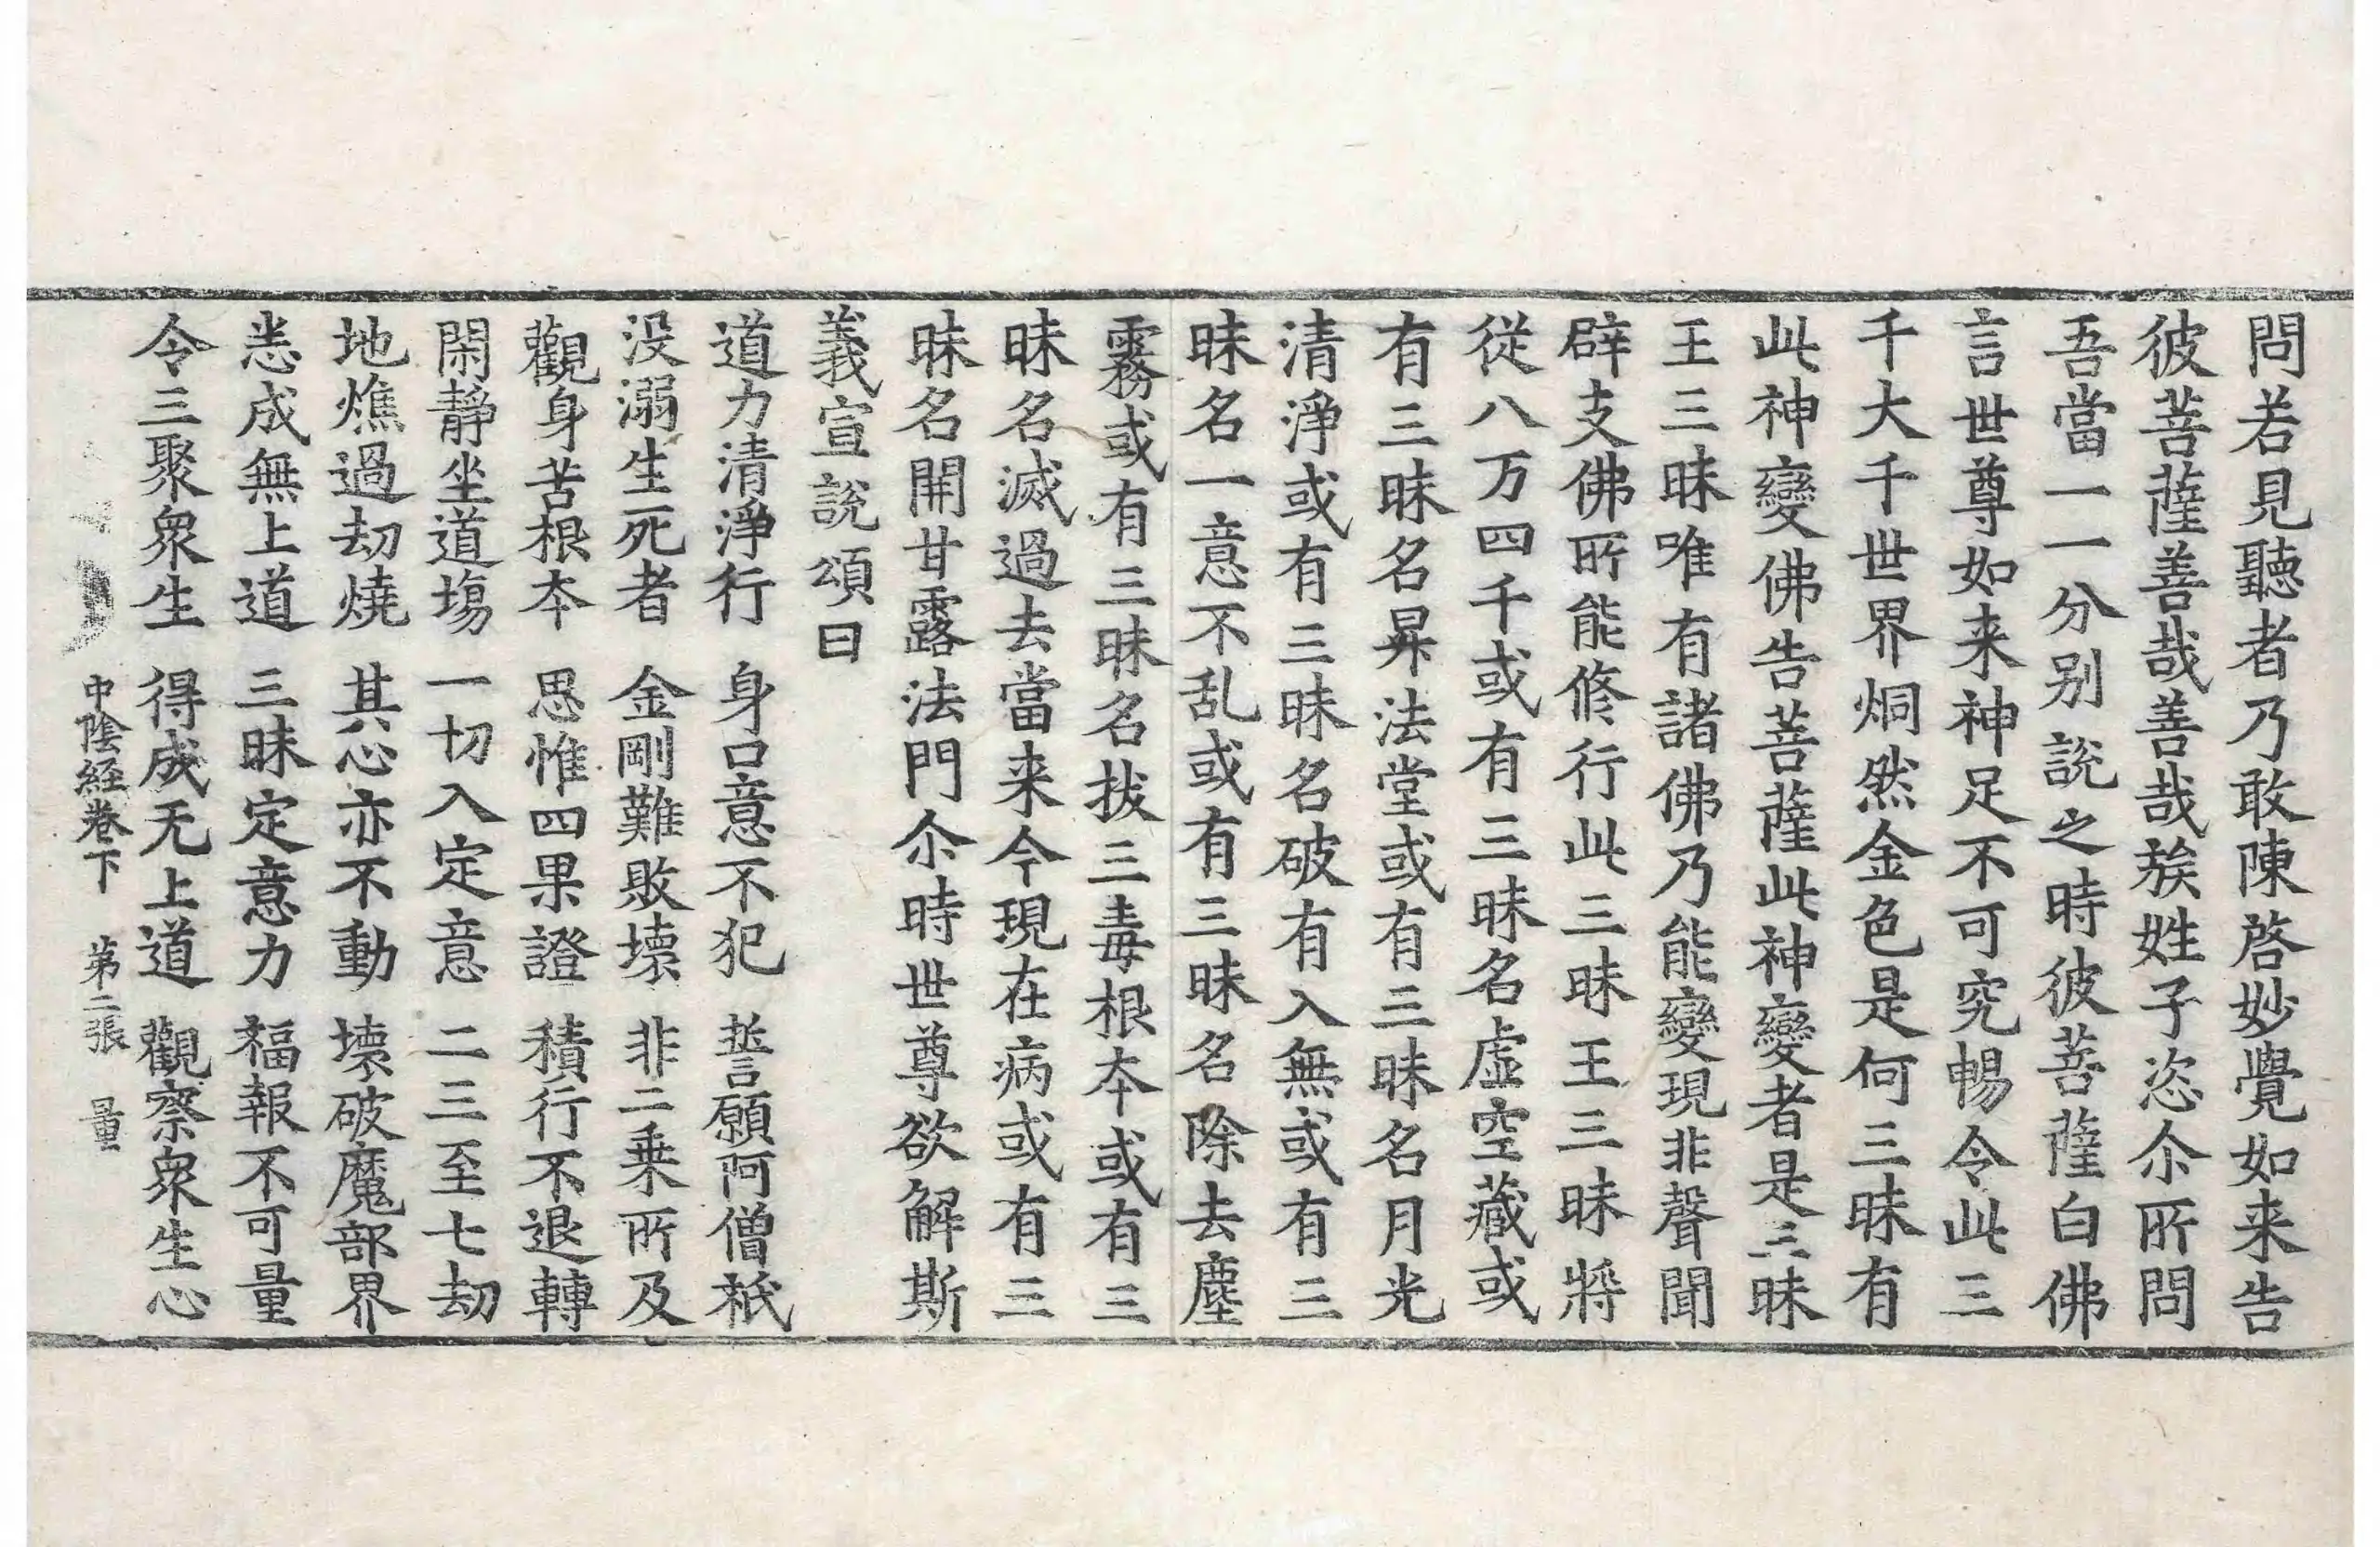 問若見聽者乃敢陳啓妙覺如来告
彼菩薩善哉善哉族姓子恣尒所問
吾當一一分别說之時彼菩薩白佛
言世尊如来神足不可究暢令此三
千大千世界烔然金色是何三昧有
此神變佛告菩薩此神變者是三昧
王三昧唯有諸佛乃能變現非聲聞
辟支佛所能修行此三昧王三昧將
從八万四千或有三昧名虚空藏或
有三昧名昇法堂或有三昧名月光
清淨或有三昧名破有入無或有三
昧名一意不乱或有三昧名除去塵
霧或有三昧名拔三毒根本或有三
昧名滅過去當来今現在病或有三
昧名開甘露法門尒時世尊欲解斯
義宣說頌曰
道力清淨行　身口意不犯　誓願阿僧秖
没溺生死者　金剛難敗壞　非二乗所及
觀身苦根本　思惟四果證　積行不退轉
閑靜坐道塲　一切入定意　二三至七劫
地燋過劫燒　其心亦不動　壞破魔部界
悉成無上道　三昧定意力　福報不可量
令三聚衆生　得成无上道　觀察衆生心
中陰経卷下　第二張　量